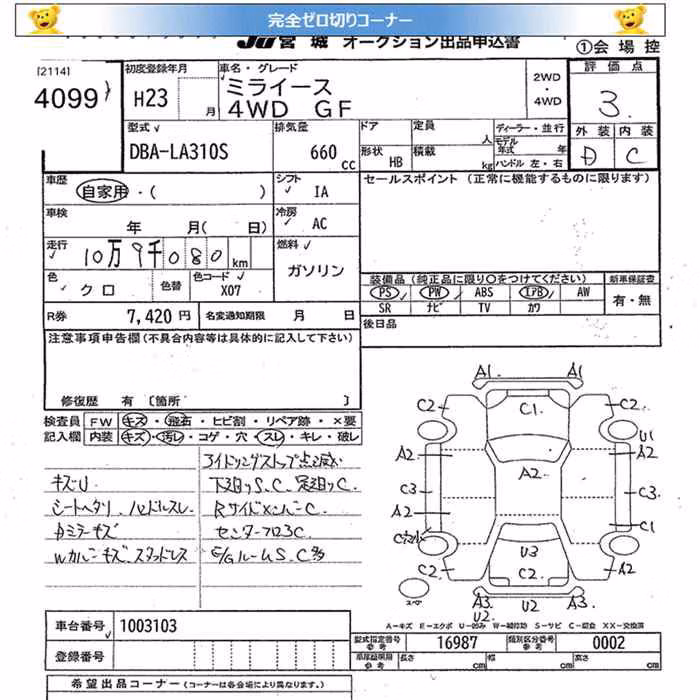 完全ゼロ切りコーナー
JU宮城 オークション出品申込書
①会場控
[2114]
4099
初度登録年月
H23 月
車名・グレード
ミライース
4WD GF
2WD
・
4WD
評価点
3.
外装 内装
D C
型式
DBA-LA310S
排気量
660 cc
ドア
定員
人
形状
HB
積載
kg
ディーラー・並行
モデル年式 年
ハンドル 左・右
車歴
自家用・( )
シフト
IA
セールスポイント (正常に機能するものに限ります)
車検
年 月( 日)
冷房
AC
走行
10万9千080 km
燃料
ガソリン
色
クロ
色替
色コード
X07
装備品(純正品に限り○をつけてください)
PS PW ABS エアB AW
SR ナビ TV カワ
新車保証書
有・無
R券
7,420 円
名変通知期限 月 日
後日品
注意事項申告欄(不具合内容等は具体的に記入して下さい)
修復歴 有 〔箇所 〕
検査員 FW キズ・飛石・ヒビ割・リペア跡・×要
記入欄 内装 キズ・汚レ・コゲ・穴・スレ・キレ・破レ
アイドリングストップ点滅
キズU
下廻りS、C 足廻りC
シートヘタリ ハンドルスレ
RサイドメンバーC
Dミラーキズ
センターフロアC
Wカバーキズ、スタッドレス
E/GルームS、C多
A1 A1
C2 C1 C2
U1
A2 A2 A2
C3 C3
A2 C1
U3
C2 C2 A2
A3 U2 A3
U2
スペア
A-キズ E-エクボ U-凹み W-補修跡 S-サビ C-腐食 XX-交換済
車台番号
1003103
型式指定番号
参考
16987
類別区分番号
参考
0002
登録番号
長さ cm
幅 cm
高さ cm
希望出品コーナー(コーナーは各会場により異なります。)